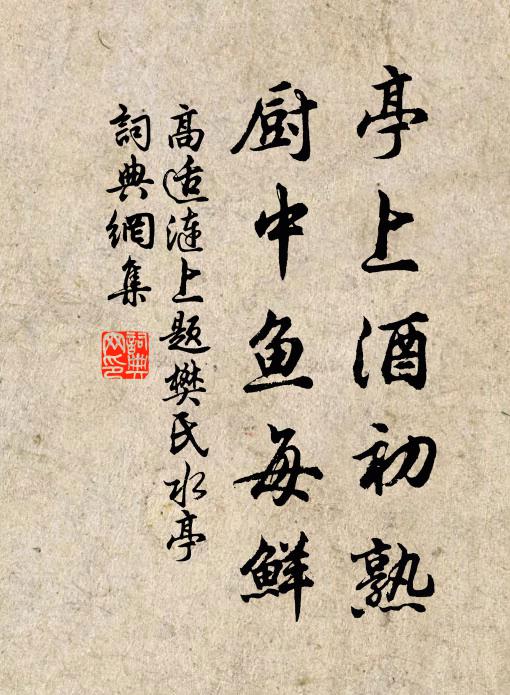 亭上酒初熟
厨中鱼每鲜
高适涟上题樊氏水亭
詞典網集
詞典網印